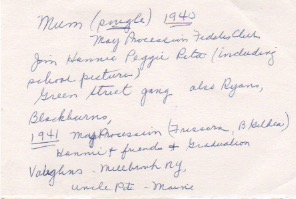 Mum (single) 1940
May Procession Fidelis Club
Jim Hannie Peggie Peta (including
school pictures)
Green Street gang also Ryans,
Blackburns,
1941 May Procession (Frissora, B Gildea)
Hanni & friends & Graduation
Vaughns - Millbrook Rd,
Uncle Pete - Maine